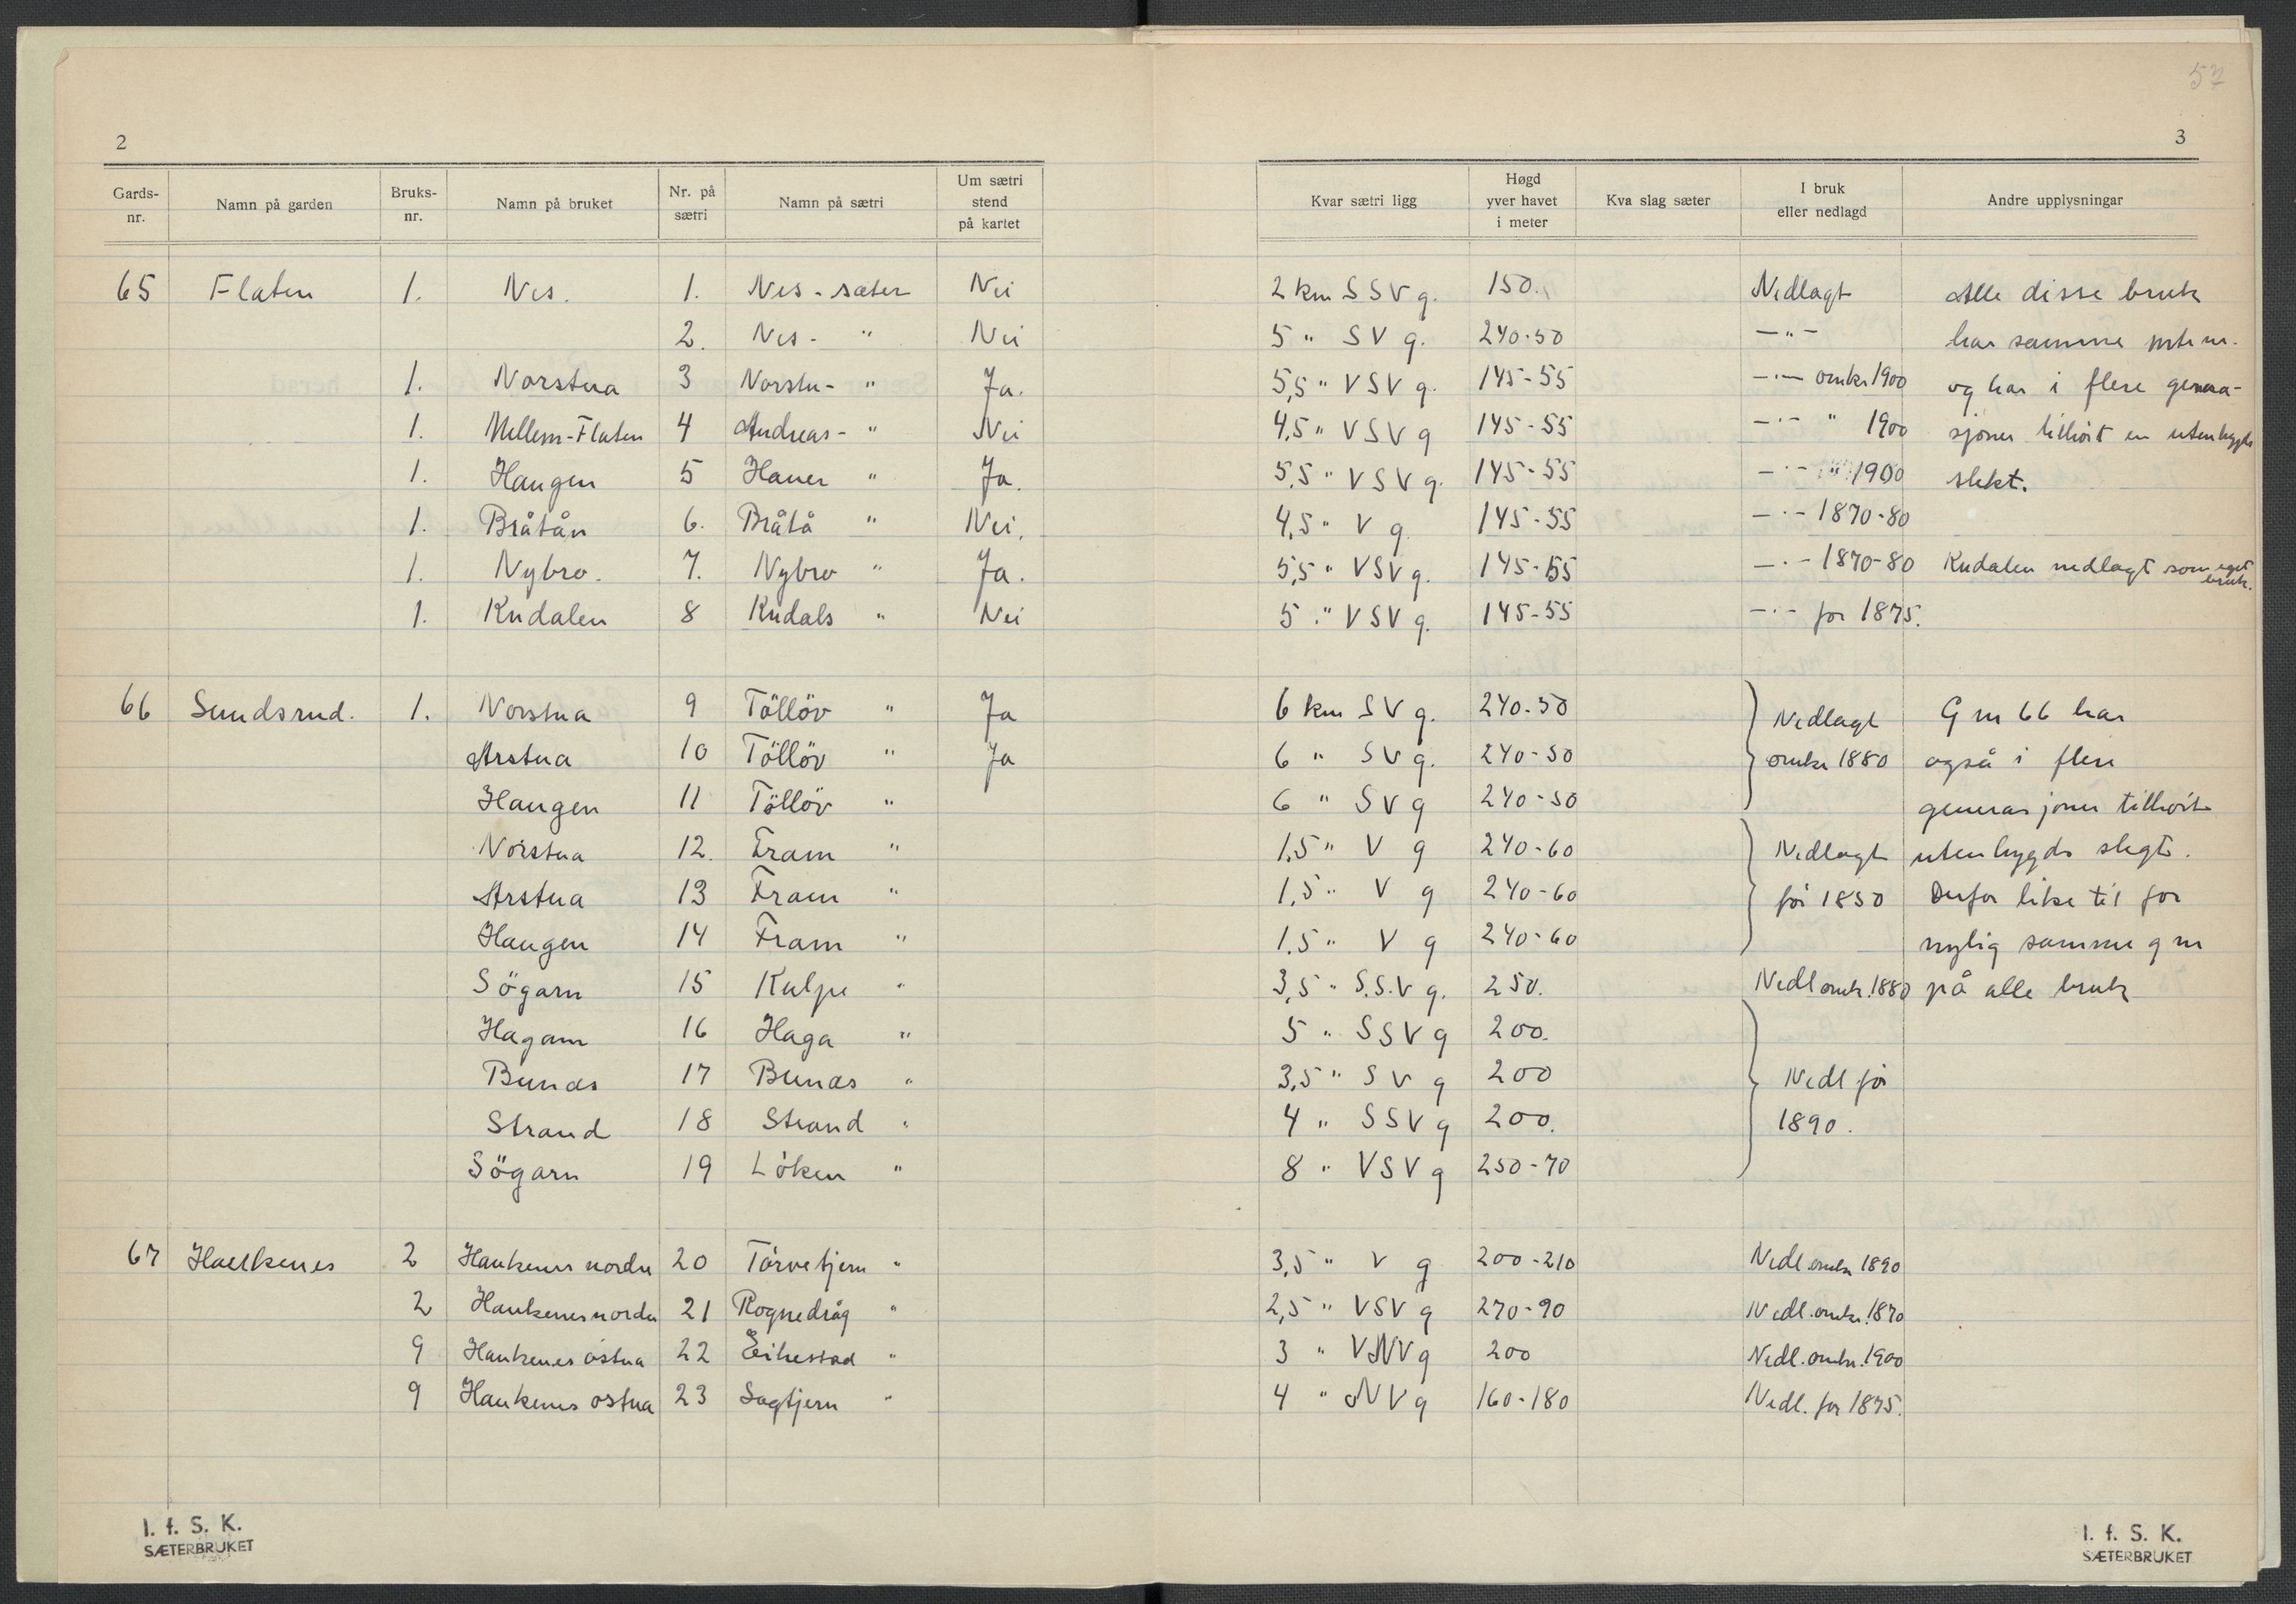 57
2
3
Gards-nr. Namn på garden Bruks-nr. Namn på bruket Nr. på sætri Namn på sætri Um sætri stend på kartet Kvar sætri ligg Høgd yver havet i meter Kva slag sæter I bruk eller nedlagd Andre upplysningar
65 Flaten 1. Nes. 1. Nes-sæter Nei 2 km SSV g. 150. Nedlagt Alle disse bruk
2. Nes- " Nei 5 " SV g. 240-50 —"— har samme
1. Norstua 3 Norstu- " Ja. 5,5 " VSV g. 145-55 —"— omkr 1900 og har i flere genera-
1. Mellem-Flaten 4 Andreas- " Nei 4,5 " VSV g 145-55 —"— " 1900 sjoner tilhört en utenbygds
1. Haugen 5 Hauer " Ja. 5,5 " VSV g. 145-55 —"— " 1900 slekt.
1. Bråtån 6. Bråtå " Nei. 4,5 " V g 145-55 —"— 1870-80
1. Nybro. 7. Nybro " Ja. 5,5 " VSV g. 145-55 —"— 1870-80 Kudalen nedlagt som eget bruk.
1. Kudalen 8 Kudals " Nei 5 " VSV g. 145-55 —"— för 1875.
66 Sundsrud. 1. Norstua 9 Töllöv " Ja 6 km SV g. 240-50 Nedlagt G nr 66 har
Arstua 10 Töllöv " Ja 6 " SV g. 240-50 omkr 1880 også i flere
Haugen 11 Töllöv " 6 " SV g 240-50 generasjoner tilhört
Norstua 12. Fram " 1,5 " V g 240-60 Nedlagt utenbygds slegt.
Arstua 13 Fram " 1,5 " V g 240-60 för 1850 Derfor like til for
Haugen 14 Fram " 1.5 " V g 240-60 nylig samme g nr
Sögarn 15 Kulpe " 3,5 " S.S.V g. 250. Nedl omkr. 1880 på alle bruk
Hagam 16 Haga " 5 " SSV g 200.
Bunäs 17 Bunäs " 3,5 " SV g 200 Nedl för
Strand 18 Strand " 4 " SSV g 200. 1890.
Sögarn 19 Löken " 8 " VSV g 250-70
67 Haukenes 2 Haukenes nordre 20 Törvetjern " 3,5 " V g 200-210 Nedl. omkr 1890
2 Haukenes nordre 21 Rognedråg " 2,5 " VSV g 270-90 Nedl. omkr. 1870
9 Haukenes östua 22 Eikestad " 3 " VNV g 200 Nedl. omkr. 1900
9 Haukenes östua 23 Sagtjern " 4 " NV g 160-180 Nedl. för 1875.
I. f. S. K.
SÆTERBRUKET
I. f. S. K.
SÆTERBRUKET